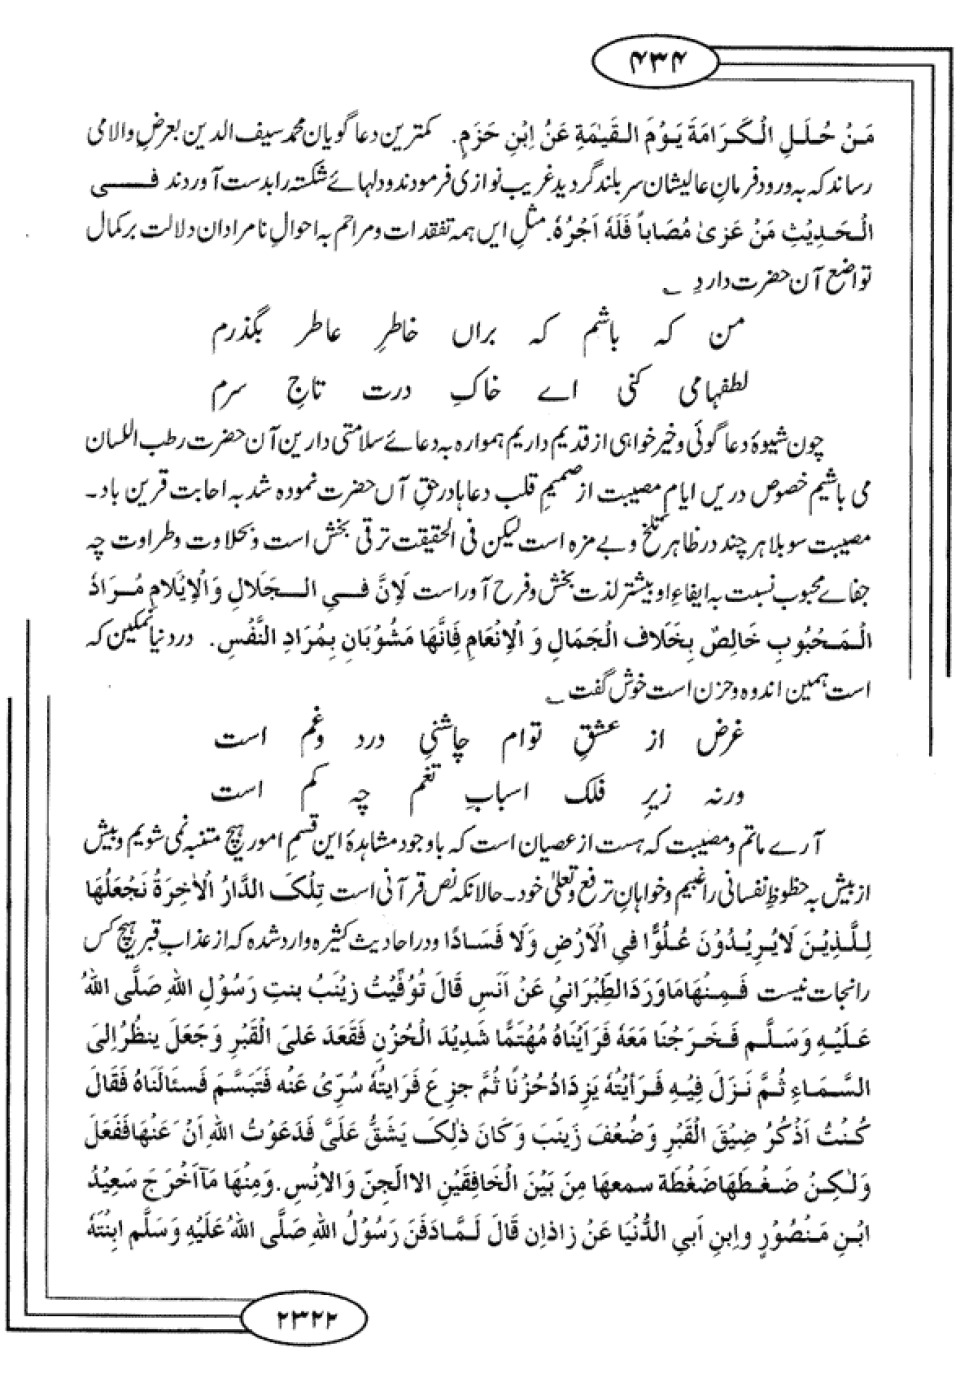 ۴۳۴
مَنْ حُلَلِ الْكَرَامَةَ يَوْمَ الْقِيٰمَةِ عَنُ اِبْنِ حَزَمٍ. کمترین دعا گویان محمد سیف الدین بعرضِ والا می
رساند کہ بہ ورود فرمانِ عالیشان سر بلند گردید غریب نوازی فرمودند و دلہائے شکستہ را بدست آوردند فِـــی
الْحَدِيْثِ مَنْ عَزىٰ مُصَاباً فَلَهٗ اَجْرُهٗ. مثلِ ایں ہمہ تفقدات و مراحم بہ احوالِ نامرادان دلالت بر کمال
تواضع آن حضرت دارد ؎
من کہ باشم کہ براں خاطرِ عاطر بگذرم
لطفہا می کنی اے خاکِ درت تاجِ سرم
چون شیوۂ دعا گوئی و خیر خواہی از قدیم داریم ہموارہ بہ دعائے سلامتی دارین آن حضرت رطب اللسان
می باشیم خصوص دریں ایامِ مصیبت از صمیمِ قلب دعاہا در حقِ آں حضرت نمودہ شد بہ اجابت قرین باد۔
مصیبت سو بلا ہر چند در ظاہر تلخ و بے مزہ است لیکن فی الحقیقت ترقی بخش است و بحلاوت و طراوت چہ
جفاے محبوب نسبت بہ ایفاءِ او بیشتر لذت بخش و فرح آور است لِاَنَّ فِي الْجَلَالِ وَالْاِيْلَامِ مُرَادَ
الْمَحْبُوبِ خَالِصٌ بِخَلَافِ الْجَمَالِ وَ الْاِنْعَامِ فَاِنَّهَا مَشُوْبَانِ بِمُرَادِ النَّفْسِ. درد نیا نمکین کہ
است ہمین اندوہ و حزن است خوش گفت ؎
غرض از عشقِ توام چاشنیِ درد و غم است
ورنہ زیرِ فلک اسبابِ تنعم چہ کم است
آرے ماتم و مصیبت کہ ہست از عصیان است کہ باوجود مشاہدۂ این قسم امور ہیچ متنبہ نمی شویم و بیش
از بیش بہ حظوظِ نفسانی راغبیم و خواہانِ ترفع و تعلیٰ خود۔ حالانکہ نص قرآنی است تِلْكَ الدَّارُ الْاٰخِرَةُ نَجْعَلُهَا
لِلَّذِيْنَ لَا يُرِيْدُوْنَ عُلُوًّا فِي الْاَرْضِ وَلَا فَسَادًا و در احادیثِ کثیرہ وارد شدہ کہ از عذابِ قبر ہیچ کس
را نجات نیست فَمِنْهَا مَا وَرَدَ الطِّبْرَانِيْ عَنْ اَنَسٍ قَالَ تُوُفِّيْتُ زَيْنَبُ بِنْتِ رَسُوْلِ اللهِ صَلَّى اللهُ
عَلَيْهِ وَسَلَّم فَخَرَجْنَا مَعَهٗ فَرَأَيْنَاهُ مُهْتَمًّا شَدِيْدَ الْحُزْنِ فَقَعَدَ عَلَى الْقَبْرِ وَجَعَلَ يَنْظُرُ اِلَى
السَّمَاءِ ثُمَّ نَزَلَ فِيْهِ فَرَأَيْتُهٗ يَزِدَادُ حُزْنًا ثُمَّ جزع فَرَايتُهٗ سُرِّىْ عَنْه فَتَبَسَّمَ فَسئَالْنَاهُ فَقَالَ
كُنْتُ اَذْكُرُ ضِيْقَ الْقَبْرِ وَضُعْفَ زَيْنَبَ وَكَانَ ذٰلِكَ يَشَقُّ عَلَىَّ فَدَعَوْتُ اللهَ اَنْ عَنْهَا فَفَعَلَ
وَلٰكِنْ ضَغْطَهَا ضَغْطَة سمعها مِنْ بَيْنَ الْخَافِقَيْنِ الا الْجِنّ وَالْاِنْس. وَمِنْهَا مَآ اَخْرَجَ سَعِيْدُ
ابْنِ مَنْصُوْرٍ وَابِنِ اَبِي الدُّنْيَا عَنْ زَاذَانِ قَالَ لَمَّا دَفَنَ رَسُوْلُ اللهِ صَلَّى اللهُ عَلَيْهِ وَسَلَّم ابْنَتَهٗ
۲۳۲۲